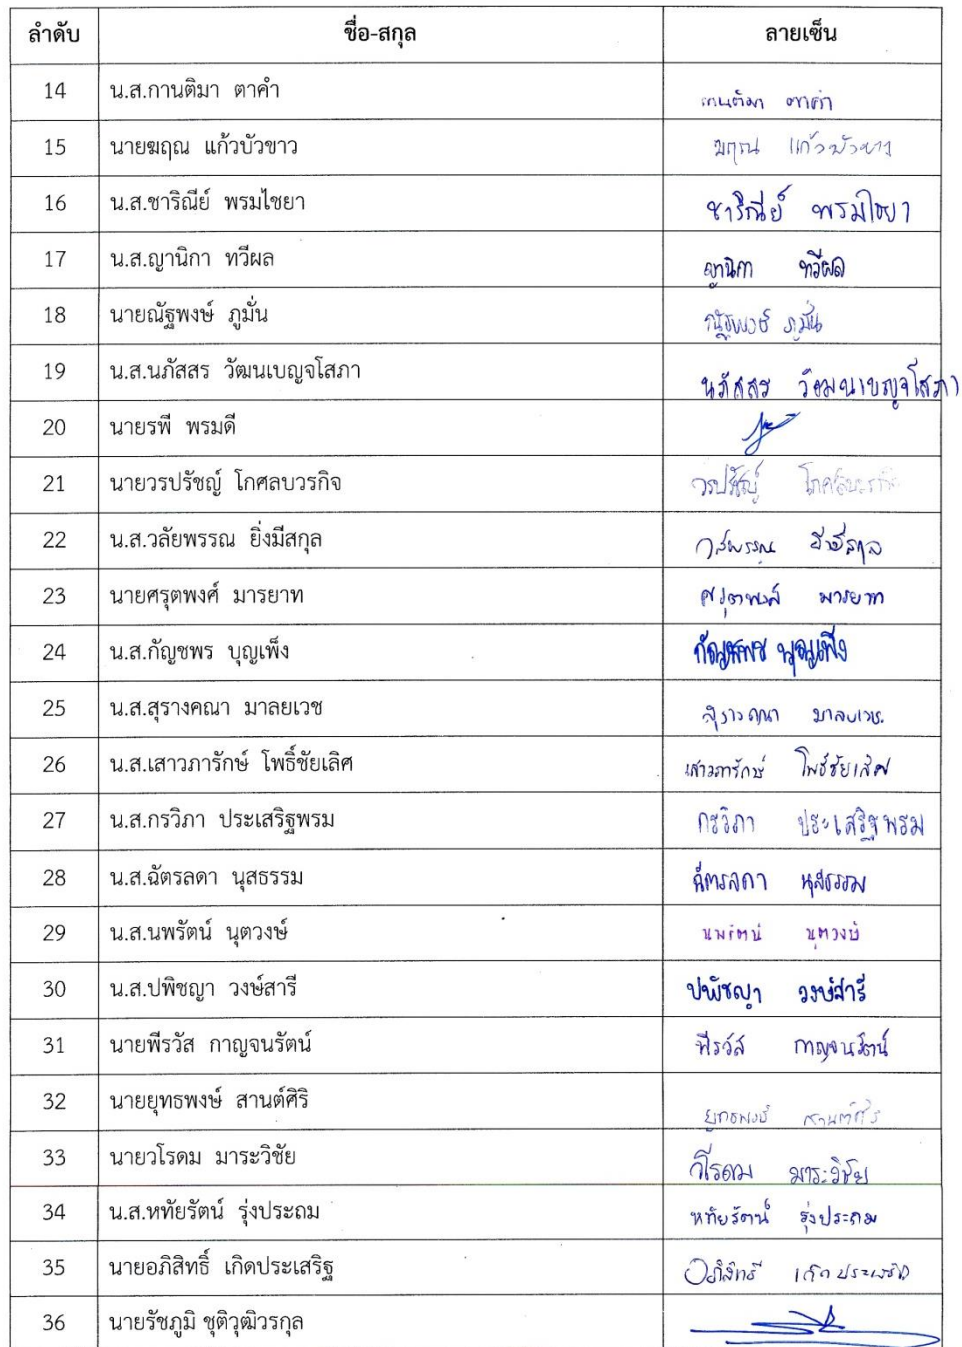 ลำดับ ชื่อ-สกุล ลายเซ็น
14 น.ส.กานติมา ตาคำ กานติมา ตาคำ
15 นายฆฤณ แก้วบัวขาว ฆฤณ แก้วบัวขาว
16 น.ส.ชาริณีย์ พรมไชยา ชาริณีย์ พรมไชยา
17 น.ส.ญานิกา ทวีผล ญานิกา ทวีผล
18 นายณัฐพงษ์ ภูมั่น ณัฐพงษ์ ภูมั่น
19 น.ส.นภัสสร วัฒนเบญจโสภา นภัสสร วัฒนาเบญจโสภา
20 นายรพี พรมดี
21 นายวรปรัชญ์ โกศลบวรกิจ วรปรัชญ์ โกศลบวรกิจ
22 น.ส.วลัยพรรณ ยิ่งมีสกุล วลัยพรรณ ยิ่งมีสกุล
23 นายศรุตพงศ์ มารยาท ศรุตพงศ์ มารยาท
24 น.ส.กัญชพร บุญเพ็ง กัญชพร บุญเพ็ง
25 น.ส.สุรางคณา มาลยเวช สุรางคณา มาลยเวช.
26 น.ส.เสาวภารักษ์ โพธิ์ชัยเลิศ เสาวภารักษ์ โพธิ์ชัยเลิศ
27 น.ส.กรวิภา ประเสริฐพรม กรวิภา ประเสริฐพรม
28 น.ส.ฉัตรลดา นุสธรรม ฉัตรลดา นุสธรรม
29 น.ส.นพรัตน์ นุตวงษ์ นพรัตน์ นุตวงษ์
30 น.ส.ปพิชญา วงษ์สารี ปพิชญา วงษ์สารี
31 นายพีรวัส กาญจนรัตน์ พีรวัส กาญจนรัตน์
32 นายยุทธพงษ์ สานต์ศิริ ยุทธพงษ์ สานต์ศิริ
33 นายวโรดม มาระวิชัย วโรดม มาระวิชัย
34 น.ส.หทัยรัตน์ รุ่งประถม หทัยรัตน์ รุ่งประถม
35 นายอภิสิทธิ์ เกิดประเสริฐ อภิสิทธิ์ เกิดประเสริฐ
36 นายรัชภูมิ ชุติวุฒิวรกุล